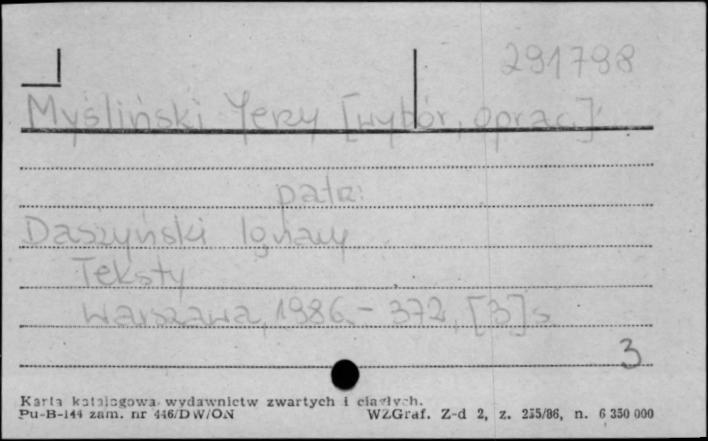 291798
Myśliński Jerzy [wybór, oprac.]
patrz:
Daszyński Ignacy
Teksty
Warszawa, 1986. - 372, [3] s.
3
Karta katalogowa wydawnictw zwartych i ciągłych.
Pu-B-144 zam. nr 446/DW/ON WZGraf. Z-d 2, z. 255/86, n. 6 350 000